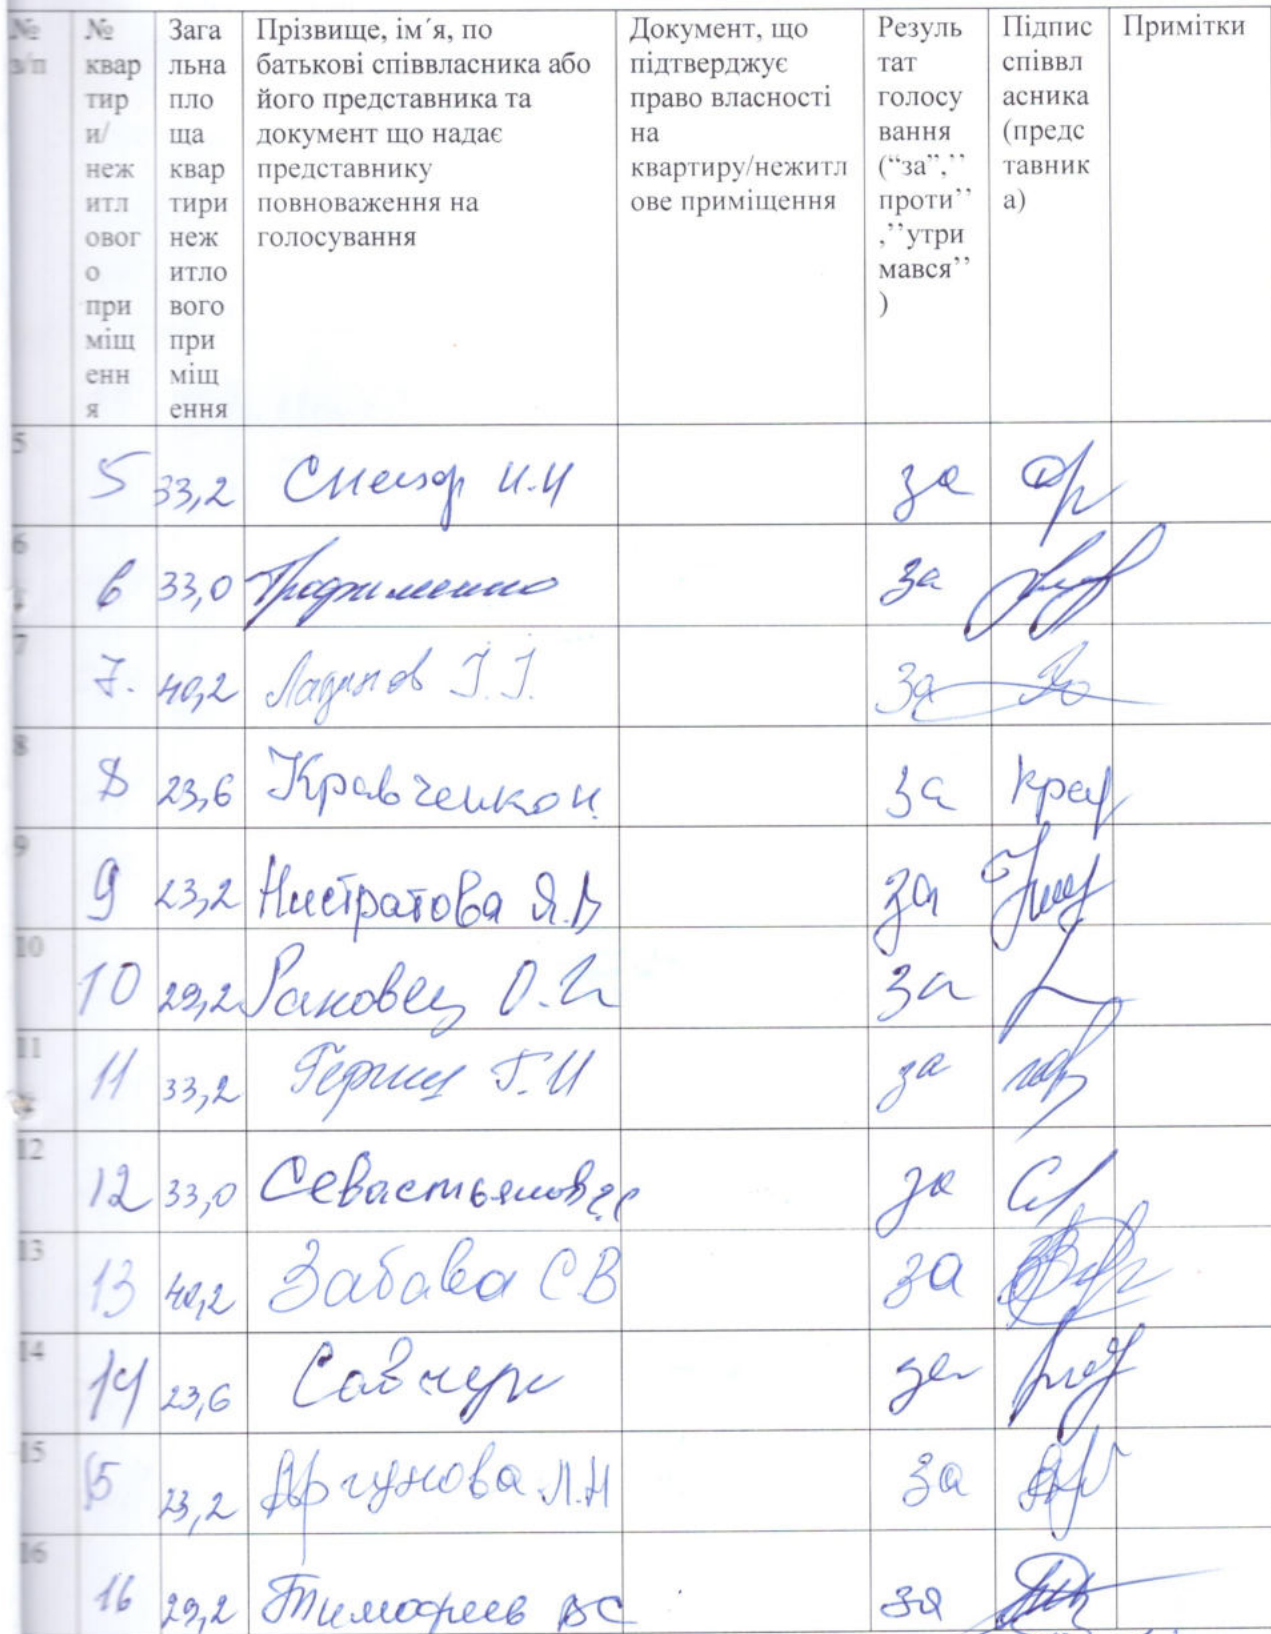 № з/п
№ квар тир и/ неж итл овог о при міщ енн я
Зага льна пло ща квар тири неж итло вого при міщ ення
Прізвище, ім´я, по батькові співвласника або його представника та документ що надає представнику повноваження на голосування
Документ, що підтверджує право власності на квартиру/нежитл ове приміщення
Резуль тат голосу вання (“за”,’’ проти’’ ,’’утри мався’’ )
Підпис співвл асника (предс тавник а)
Примітки
5 5 33,2 И.И за
6 6 33,0 Трофименко за
7 7. 40,2 І.І. За
8 8 23,6 Кравченко Н. за
9 9 23,2 Нистратова Я.В за
10 10 29,2 Раковец О. за
11 11 33,2 Г.И за
12 12 33,0 Севастьянов за
13 13 40,2 Забава С В за
14 14 23,6 за
15 15 23,2 Аргунова Л.Н за
16 16 29,2 Тимофеев ВС за